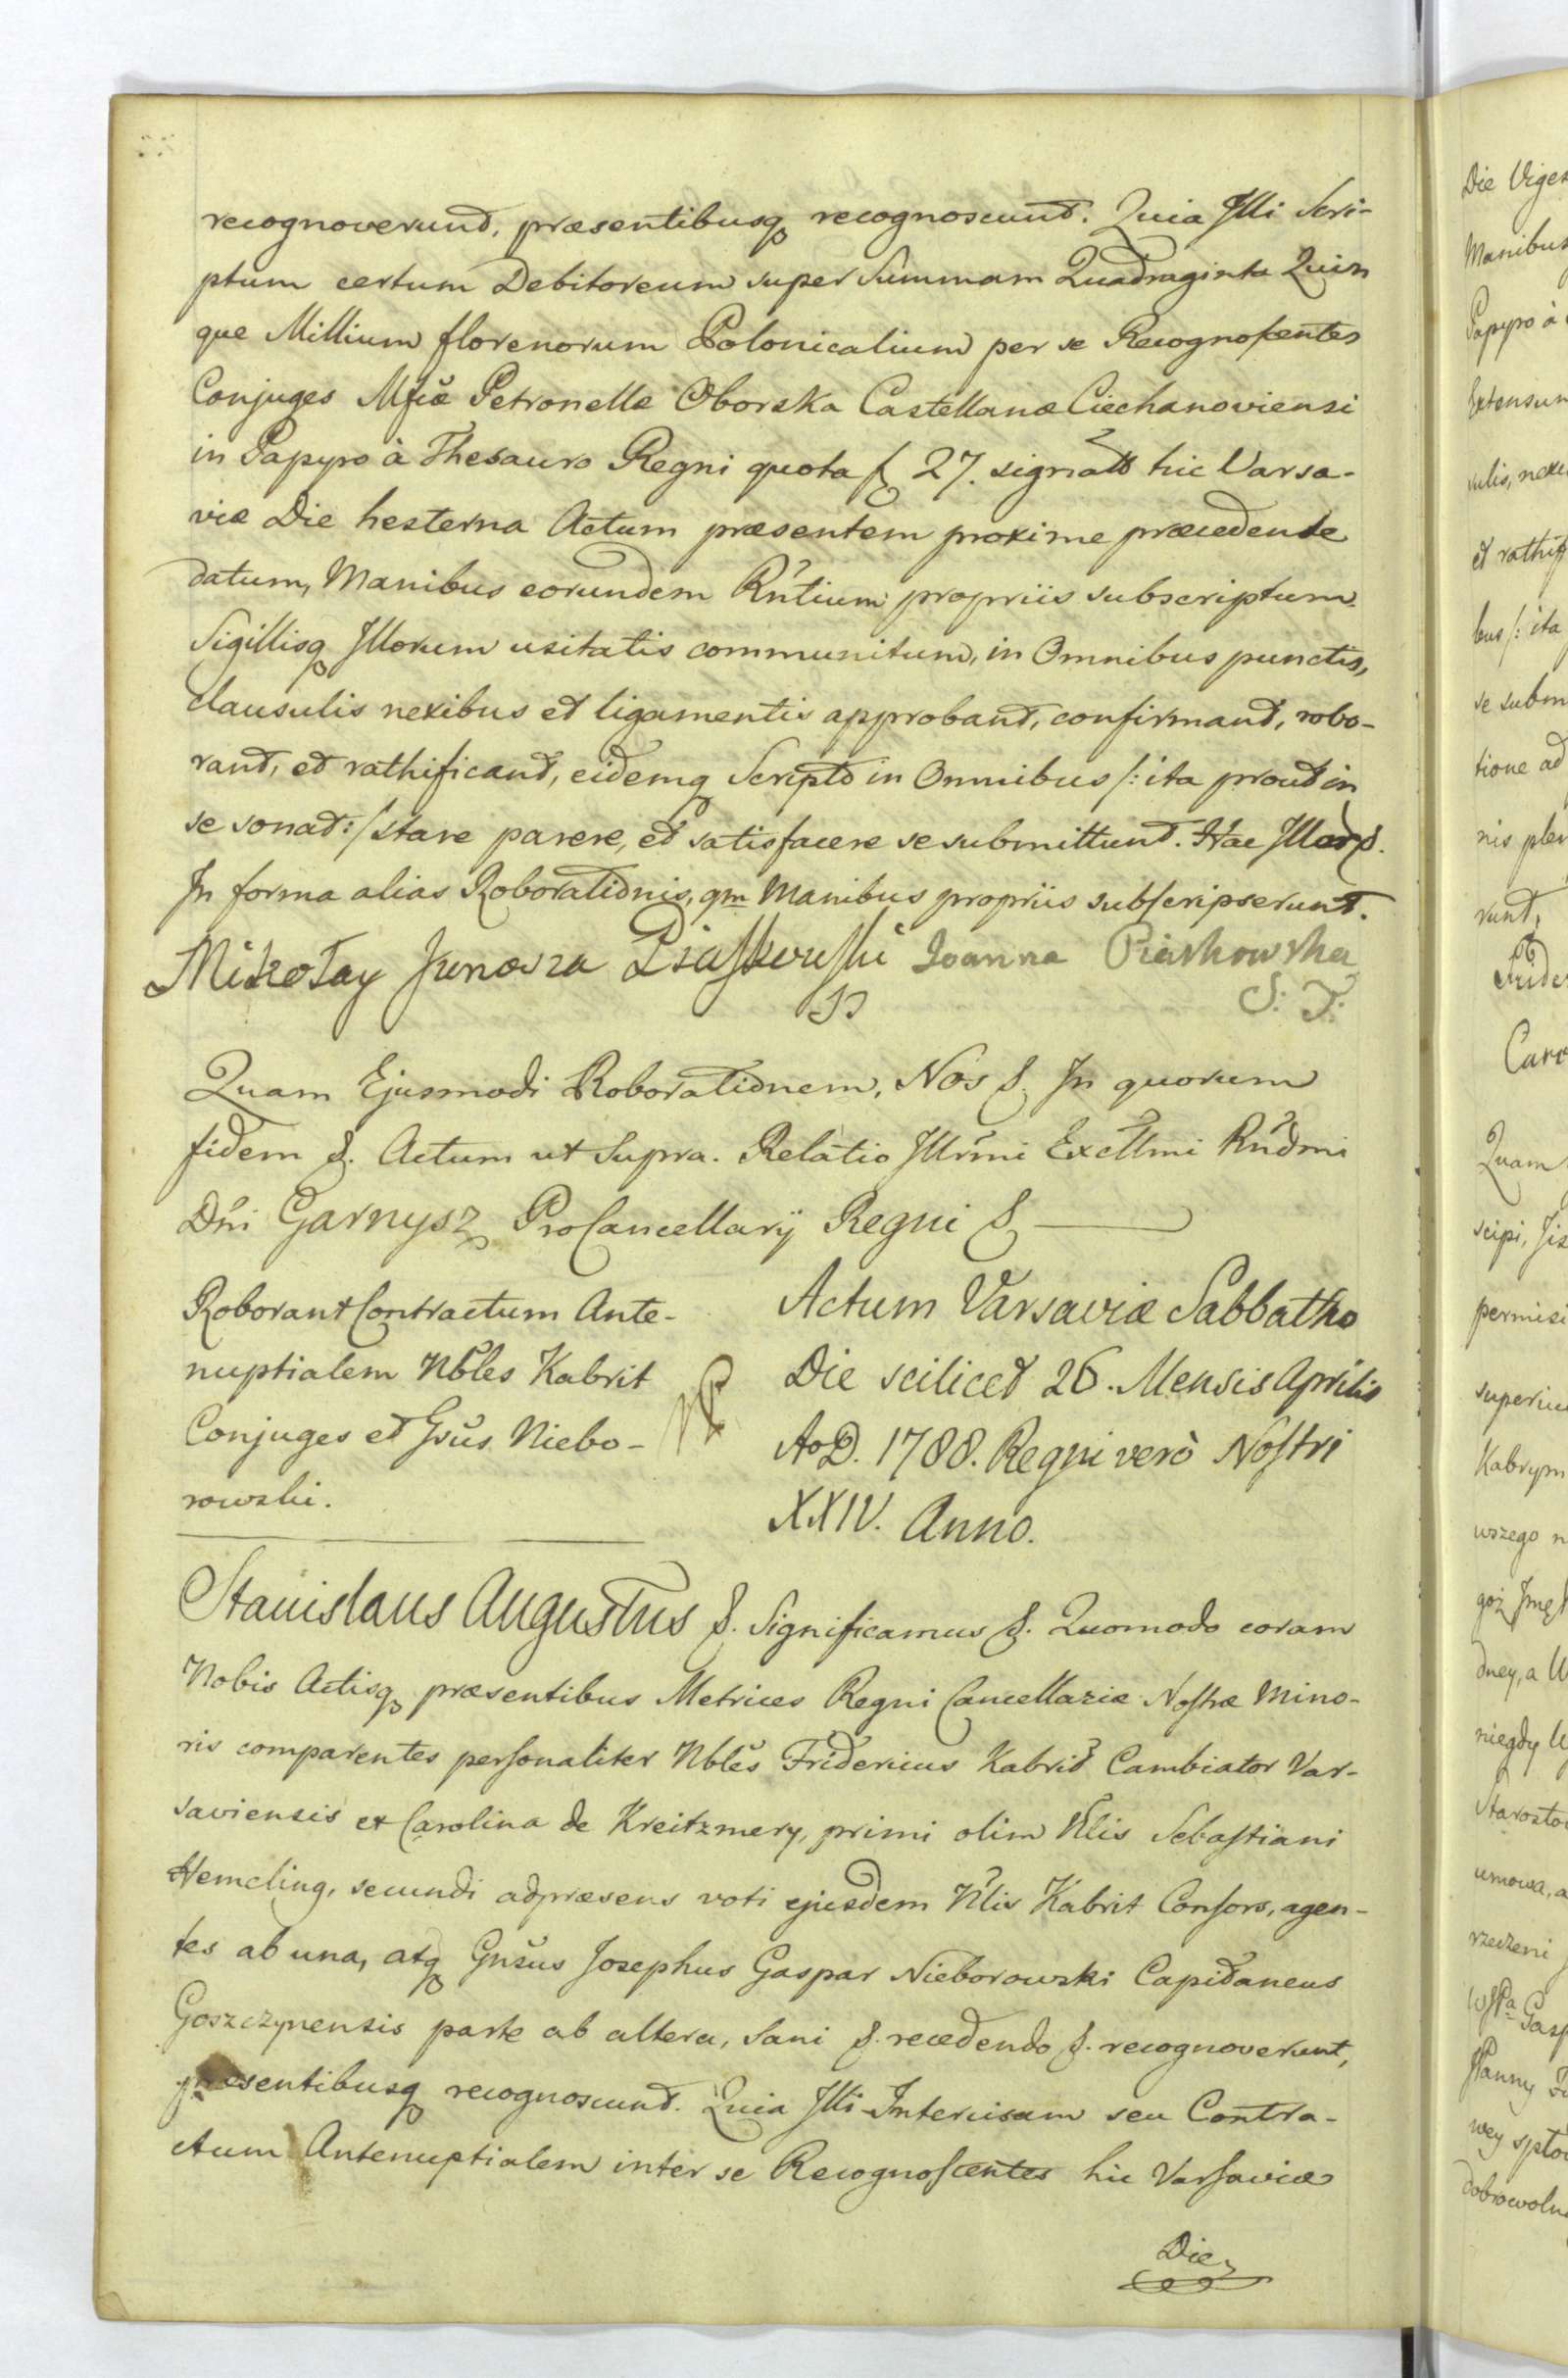 recognoverunt, præsentibusq recognoscunt. Quia Illi Scri-
ptum certum Debitoreum super Summam Quadraginta Quin
que Millium florenorum Polonicalium per se Recognoscentes
Conjuges Mfcæ Petronellæ Oborska Castellanæ Ciechanoviensi
in Papyro à Thesauro Regni quota f 27. signato hic Varsa-
viæ Die hesterna Actum præsentem proxime præcedente
datum, Manibus eorundem Rntium propriis subscriptum
Sigillisq Illorum usitatis communitum, in Omnibus punctis,
clausulis nexibus et ligamentis approbant, confirmant, robo-
rant, et rathificant, eidemq Scripto in Omnibus /: ita prout in
se sonat :/ stare parere, et satisfacere se submittunt. Hac Illor &.
In forma alias Roborationis, qm Manibus propriis subscripserunt.
Mikołay Junosza Piaskowski Joanna Piaskowska
S: J:
Quam Ejusmodi Roborationem, Nos &. In quorum
fidem &. Actum ut Supra. Relatio Illrmi Excllmi Rndmi
Dni Garnysz ProCancellarij Regni &
Roborant Contractum Ante-
nuptialem Nbles Kabrit
Conjuges et Gsus Niebo-
rowski.
Actum Varsaviæ Sabbatho
Die scilicet 26. Mensis Aprilis
AoD. 1788. Regni verò Nostri
XXIV. Anno.
Stanislaus Augustus &. Significamus &. Quomodo coram
Nobis Actisq præsentibus Metrices Regni Cancellariæ Nostræ Mino-
ris comparentes personaliter Nbles Fridericus Kabrit Cambiator Var-
saviensis et Carolina de Kreitzmery, primi olim Nlis Sebastiani
Hemeling, secundi adpræsens voti ejusdem Nlis Kabrit Consors, agen-
tes ab una, atq Gnsus Josephus Gaspar Nieborowski Capitaneus
Goszczynensis parte ab altera, Sani &. recedendo &. recognoverunt,
præsentibusq recognoscunt. Quia Illi Intercisam seu Contra-
ctum Antenuptialem inter se Recognoscentes hic Varsaviæ
Die
Die Viges
Manibus
Papyro à
Extensum
sulis, nexi
et rathif
bus /: ita
se subm
tione ad
nis plen
runt,
Frider
Caro
Quam
scipi,
permisi
superiu
Kabrym
wszego n
goż Jmę
dney, a W
niegdy U
Starosto
umowa, a
rzeczeni
Gasp
Panny
wey spło
dobrowoln